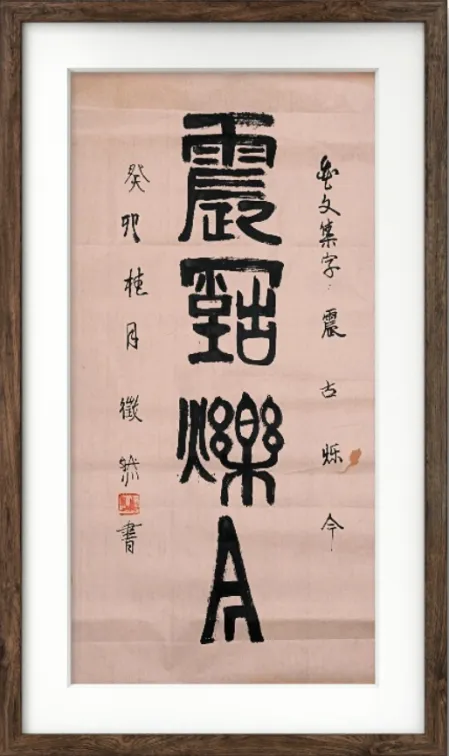 金文集字：震古烁今
震古爍今
癸卯桂月徵然書